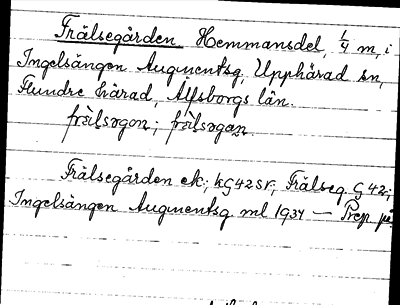 Frälsegården Hemmansdel, 1/4 m, i
Ingelsängen Augmentsg, Upphärad sn,
Flundre härad, Älfsborgs län.
Frälsegården ek; kG42SV; Frälseg. G42;
Ingelsängen Augmentsg ml 1934 — Prep. på